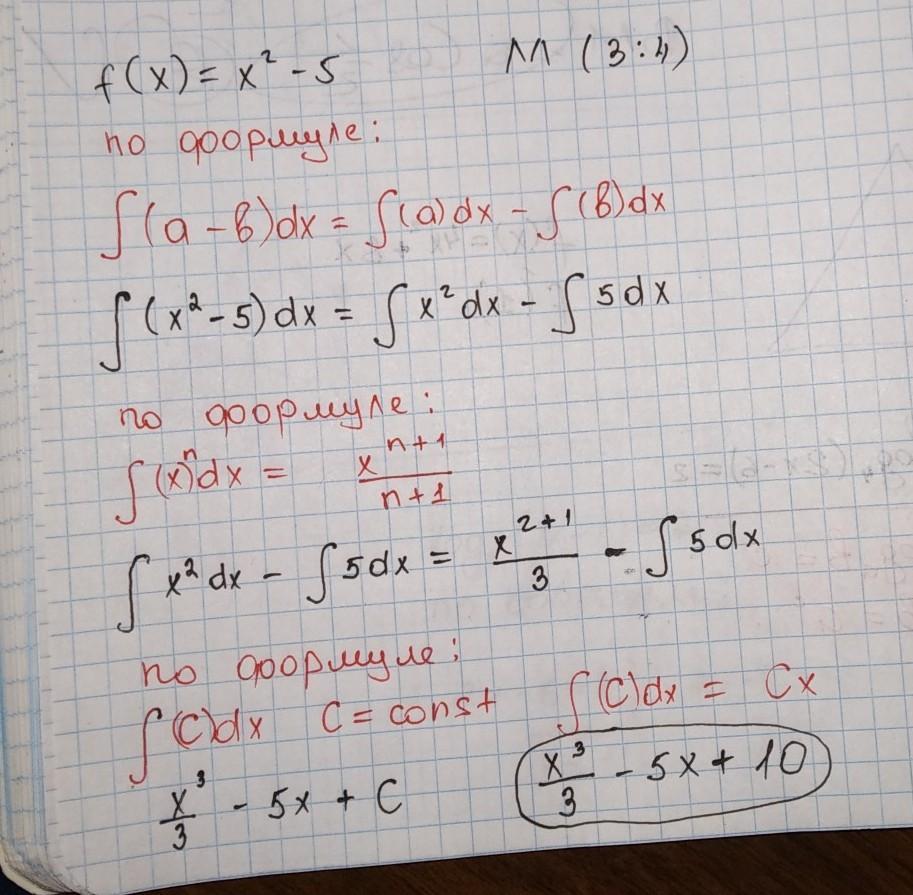 f(x) = x² - 5 M (3:4)
по формуле:
∫(a - b)dx = ∫(a)dx - ∫(b)dx
∫(x² - 5)dx = ∫x²dx - ∫5dx
по формуле:
∫(x)ⁿdx = xⁿ⁺¹/n+1
∫x²dx - ∫5dx = x²⁺¹/3 - ∫5dx
по формуле:
∫(C)dx C = const ∫(C)dx = Cx
x³/3 - 5x + C x³/3 - 5x + 10